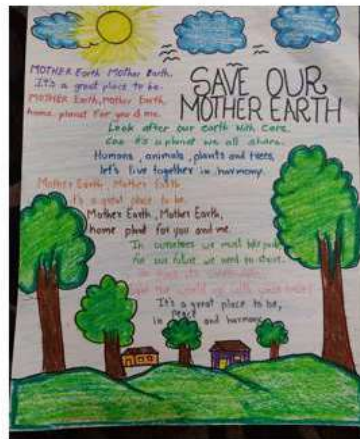 MOTHER Earth Mother Earth.
It's a great place to be.
MOTHER Earth, Mother Earth.
home planet for you & me.
SAVE OUR
MOTHER EARTH
Look after our earth with care.
a planet we all share.
Humans, animals, plants and trees,
let's live together in harmony.
Mother Earth, Mother Earth
It's a great place to be.
Mother Earth, Mother Earth,
home for you and me.
In ourselves we must take
For our future we need to
the world
It's a great place to be,
in peace and harmony.